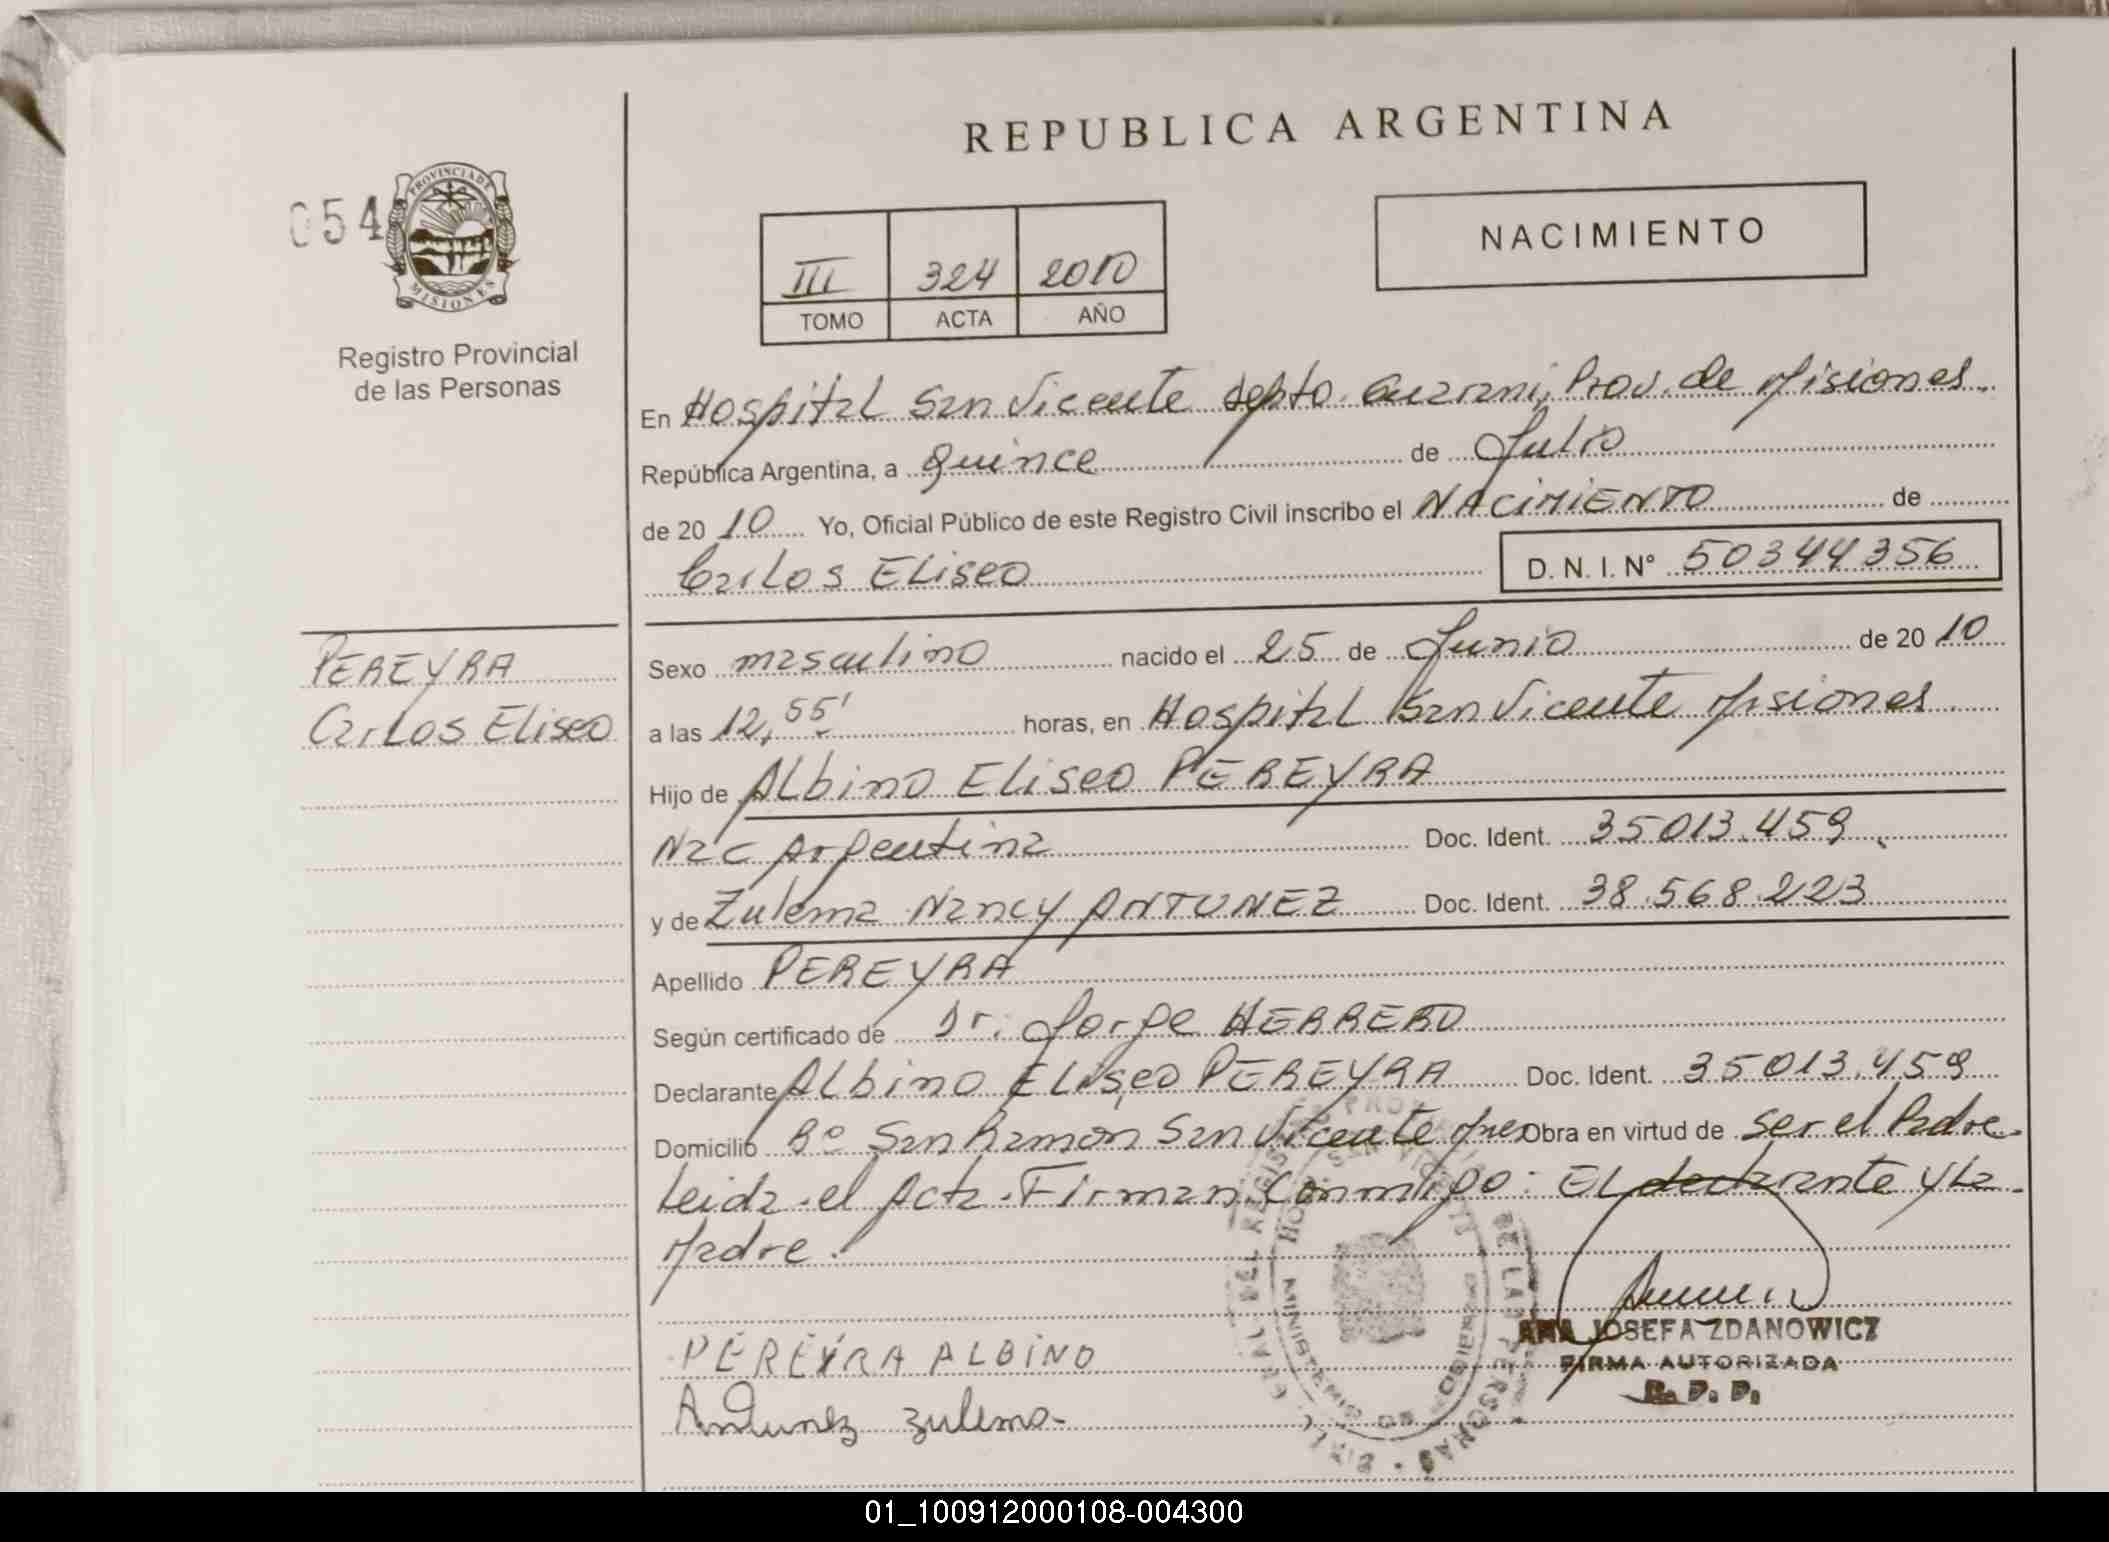 REPUBLICA ARGENTINA
054
PROVINCIA DE
MISIONES
Registro Provincial
de las Personas
III 324 2010
TOMO ACTA AÑO
NACIMIENTO
En Hospital San Vicente depto. Guarani, Prov. de Misiones.
República Argentina, a Quince de Julio
de 20 10 Yo, Oficial Público de este Registro Civil inscribo el NACIMIENTO de
Carlos Eliseo D. N. I. N° 50344356
PEREYRA
Carlos Eliseo
Sexo masculino nacido el 25 de Junio de 20 10
a las 12,55' horas, en Hospital San Vicente Misiones
Hijo de Albino Eliseo PEREYRA
Nac Argentina Doc. Ident. 35013.459
y de Zulema Nancy ANTUNEZ Doc. Ident. 38.568.223
Apellido PEREYRA
Según certificado de Dr. Jorge HERRERO
Declarante Albino Eliseo PEREYRA Doc. Ident. 35013.459
Domicilio B° San Ramon San Vicente Mnes Obra en virtud de ser el Padre.
Leida el Acta. Firman Conmigo: El declarante y la
Madre.
PEREYRA ALBINO
Antunez zulema
ANA JOSEFA ZDANOWICZ
FIRMA AUTORIZADA
R. P. P.
MINISTERIO DE GOBIERNO
DE LAS PERSONAS
01_100912000108-004300